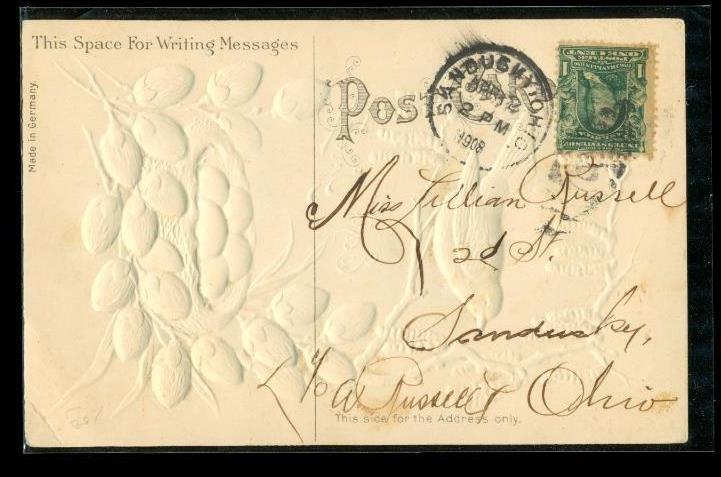 This Space For Writing Messages
Made in Germany.
POST
SANDUSKY, OHIO
2 PM
1908
Miss Lillian Russell
2d St.
Sandusky,
c/o A Russell
Ohio
This side for the Address only.